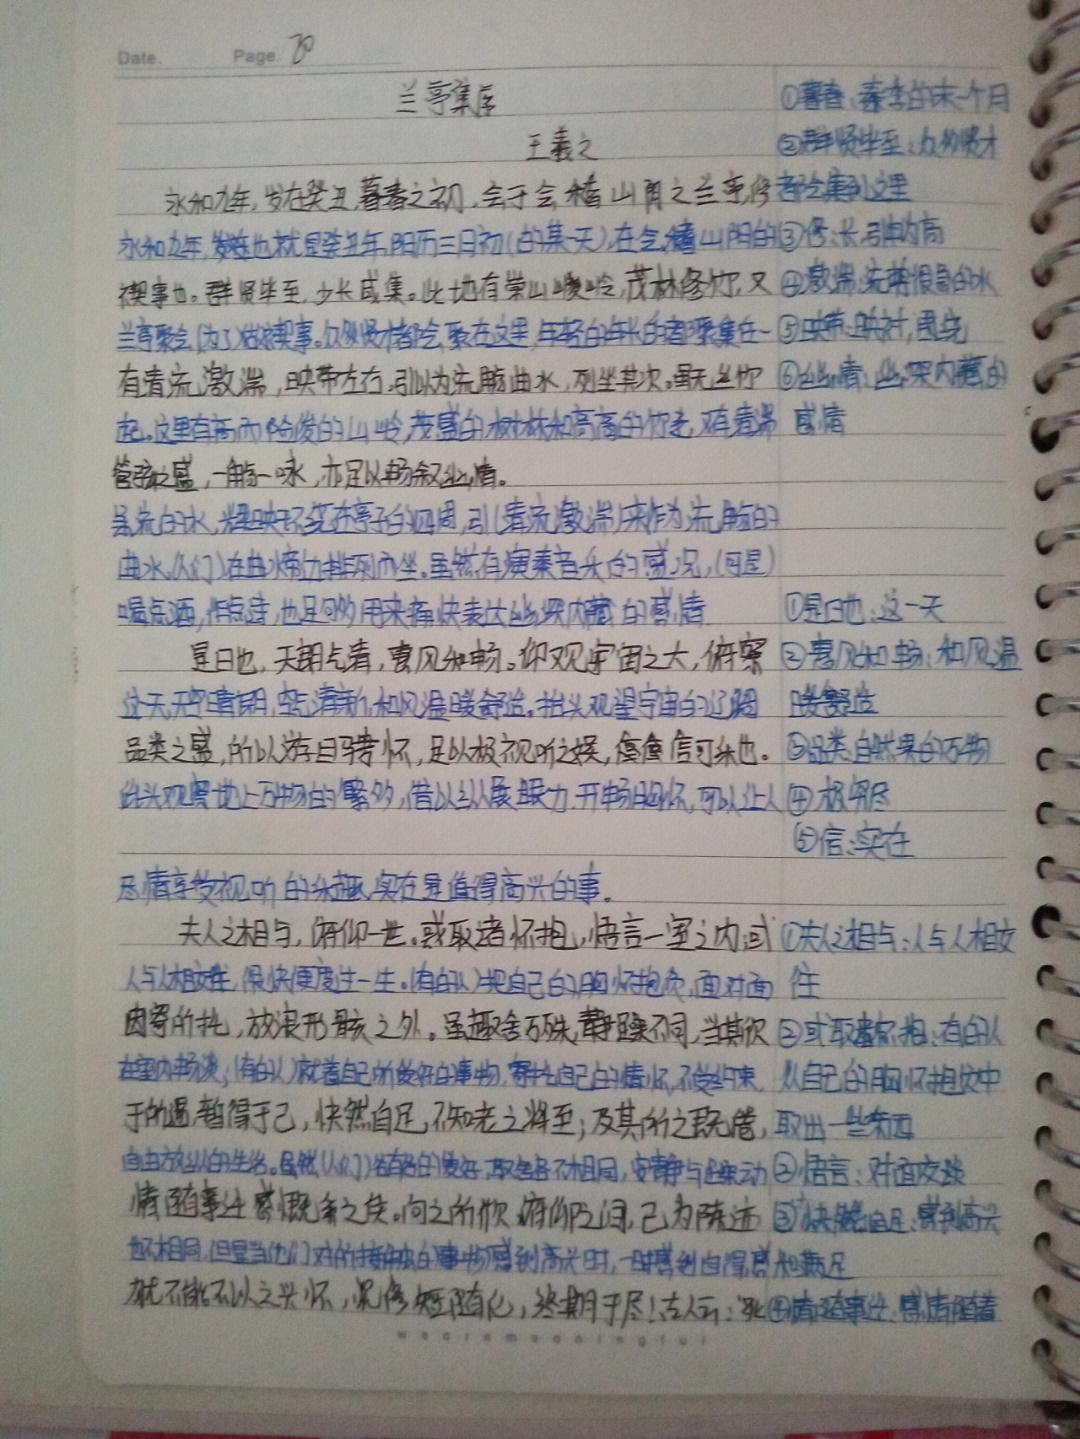 Date. Page 70
兰亭集序 ①暮春：春季的末一个月
王羲之 ②群贤毕至：众多贤才
永和九年，岁在癸丑，暮春之初，会于会稽山阴之兰亭，修 都会集到这里
永和九年，也就是癸丑年，阴历三月初（的某一天），在会稽山阴的 ③修：长，引申为高
禊事也。群贤毕至，少长咸集。此地有崇山峻岭，茂林修竹，又 ④激湍：流势很急的水
兰亭聚会，（为了）做禊事。众多贤才都会聚在这里，年轻的年长的都聚集在一 ⑤映带：映衬，围绕
有清流激湍，映带左右，引以为流觞曲水，列坐其次。虽无丝竹 ⑥幽情：幽深内藏的
起。这里有高而险峻的山岭，茂盛的树林和高高的竹子，又有清澈 感情
管弦之盛，一觞一咏，亦足以畅叙幽情。
急流的水，辉映环绕在亭子的四周，引（清流激湍）来作为流觞的
曲水，（人们）在曲水旁边排列而坐。虽然有演奏音乐的盛况，（可是）
喝点酒，作点诗，也足够用来痛快表达幽深内藏的感情 ①是日也：这一天
是日也，天朗气清，惠风和畅。仰观宇宙之大，俯察 ②惠风和畅：和风温
这天，天空晴朗，空气清新，和风温暖舒适。抬头观望宇宙的辽阔 暖舒适
品类之盛，所以游目骋怀，足以极视听之娱，信可乐也。 ③品类：自然界的万物
低头观察地上万物的繁多，借以纵展眼力，开畅胸怀，可以让人 ④极：穷尽
⑤信：实在
尽情享受视听的乐趣，实在是值得高兴的事。
夫人之相与，俯仰一世。或取诸怀抱，悟言一室之内；或 ①夫人之相与：人与人相交
人与人相交往，很快便度过一生。（有的人）把自己的胸怀抱负，面对面 往
因寄所托，放浪形骸之外。虽趣舍万殊，静躁不同，当其欣 ②或取诸怀抱：有的人
在室内畅谈；（有的人）就着自己所爱好的事物，寄托自己的情怀，不受约束， 从自己的胸怀抱负中
于所遇，暂得于己，快然自足，不知老之将至；及其所之既倦， 取出一些东西
自由放纵的生活。虽然（人们）各有各的爱好，取舍各不相同，安静与躁动 ②悟言：对面交谈
情随事迁，感慨系之矣。向之所欣，俯仰之间，已为陈迹 ③快然自足：感到高兴
也不相同，但是当他们对所接触的事物感到高兴时，一时感到自得感 和满足
就不能不以之兴怀，况修短随化，终期于尽！古人云："死 ④情随事迁：感情随着
wearemeaningful